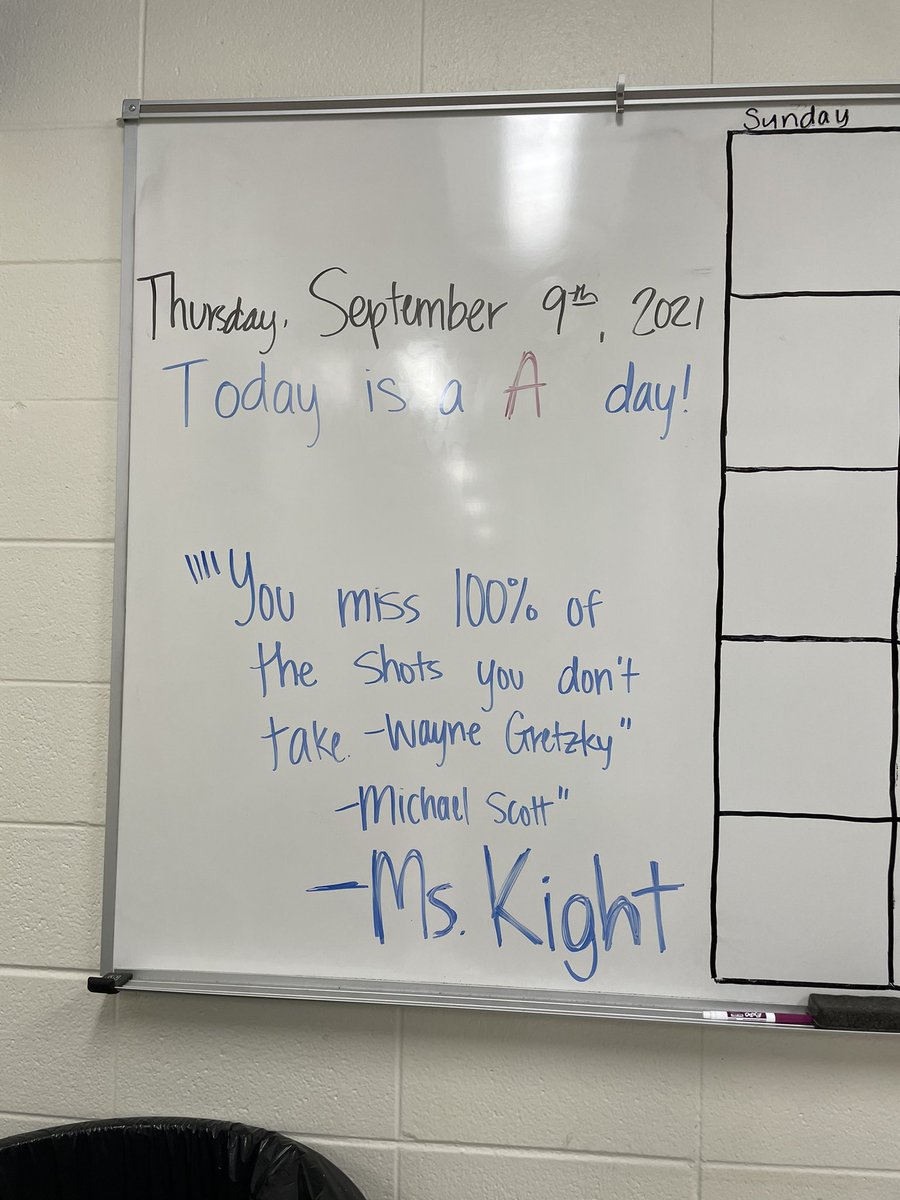 Sunday
Thursday, September 9th, 2021
Today is a A day!
""You miss 100% of
the shots you don't
take. -Wayne Gretzky"
-Michael Scott"
-Ms. Kight